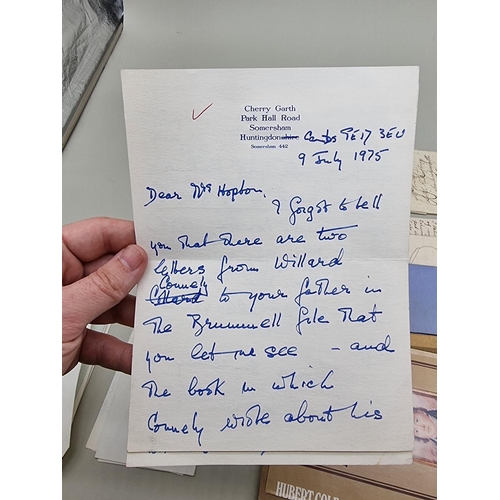 Cherry Garth
Park Hall Road
Somersham
Huntingdonshire Cambs PE17 3EU
Somersham 442
9 July 1975
Dear Mrs Hopton,
I forgot to tell
you that there are two
letters from Willard
Connely
to your father in
the Brummell file that
you let me see – and
the book in which
Connely wrote about his
HUBERT COLE